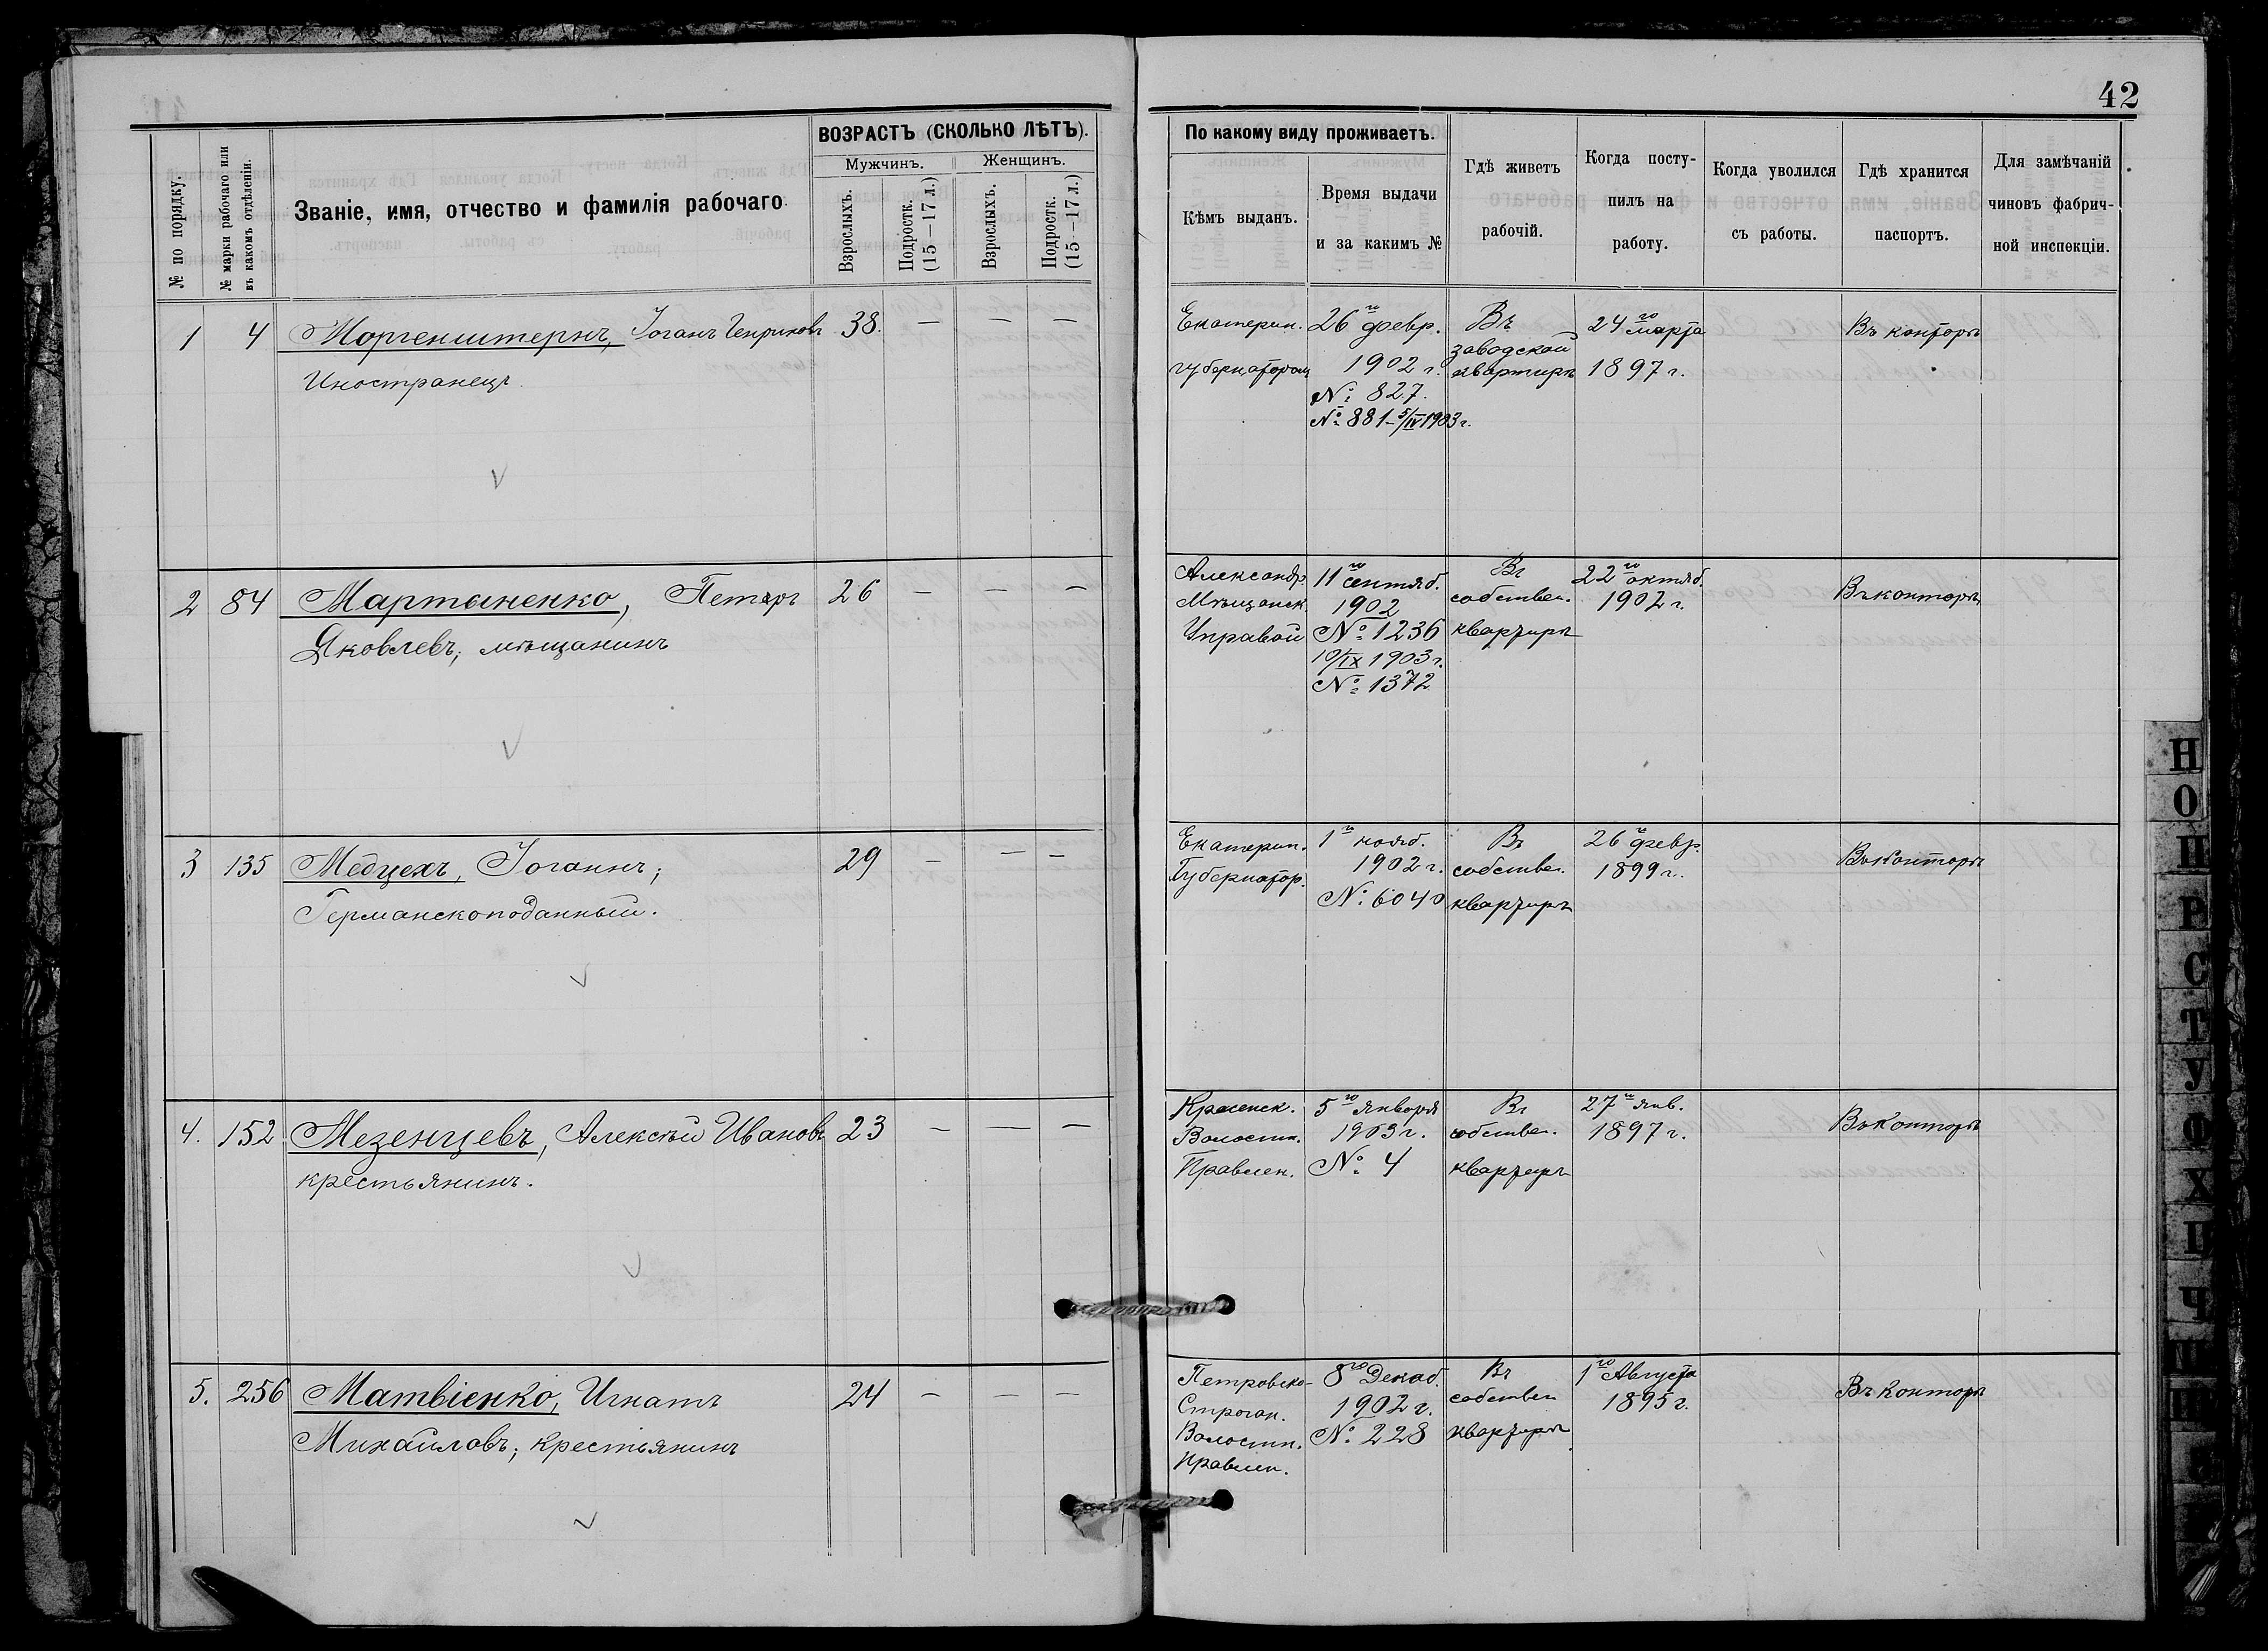 42
№ по порядку.
№ марки рабочаго или
въ какомъ отдѣленіи.
Званіе, имя, отчество и фамилія рабочаго
ВОЗРАСТЪ (СКОЛЬКО ЛѢТЪ).
Мужчинъ.
Женщинъ.
Взрослыхъ.
Подростк.
(15—17 л.)
Взрослыхъ.
Подростк.
(15—17 л.)
По какому виду проживаетъ.
Кѣмъ выданъ.
Время выдачи
и за какимъ №
Гдѣ живетъ
рабочій.
Когда посту-
пилъ на
работу.
Когда уволился
съ работы.
Гдѣ хранится
паспортъ.
Для замѣчаній
чиновъ фабрич-
ной инспекціи.
1 4 Моргенштернъ, Іоганъ Генриковъ 38. — — —
Иностранецъ
Екатерин.
губернаторомъ
26го февр.
1902 г.
№ 827.
№ 881 – 5/IV 1903 г.
Въ
заводской
квартирѣ
24го марта
1897 г.
Въ конторѣ
2 84 Мартыненко, Петръ 26 — — —
Яковлевъ, мѣщанинъ
Александр.
Мѣщанск.
Управой
11го сентяб.
1902
№ 1236
10/IX 1903 г.
№ 1372
Въ
собствен.
квартирѣ
22го октяб.
1902 г.
Въ конторѣ
3 135 Медцехъ, Іоганнъ; 29 — — —
Германскоподанный.
Екатерин.
Губернатор.
1го нояб.
1902 г.
№ 6040
Въ
собствен.
квартирѣ
26го февр.
1899 г.
Въ Конторѣ
4. 152 Мезенцевъ, Алексѣй Ивановъ 23 — — —
крестьянинъ.
Волостн.
Правлен.
5го января
1903 г.
№ 4
Въ
собствен.
квартирѣ
27го янв.
1897 г.
Въ Конторѣ
5. 256 Матвіенко, Игнатъ 24 — — —
Михайловъ; крестьянинъ
Петровско-
Строган.
Волостн.
Правлен.
8го Декаб.
1902 г.
№ 228
Въ
собствен
квартирѣ
1го Августа
1895 г.
Въ Конторѣ
Н
О
П
Р
С
Т
У
Ф
Х
Ц
Ч